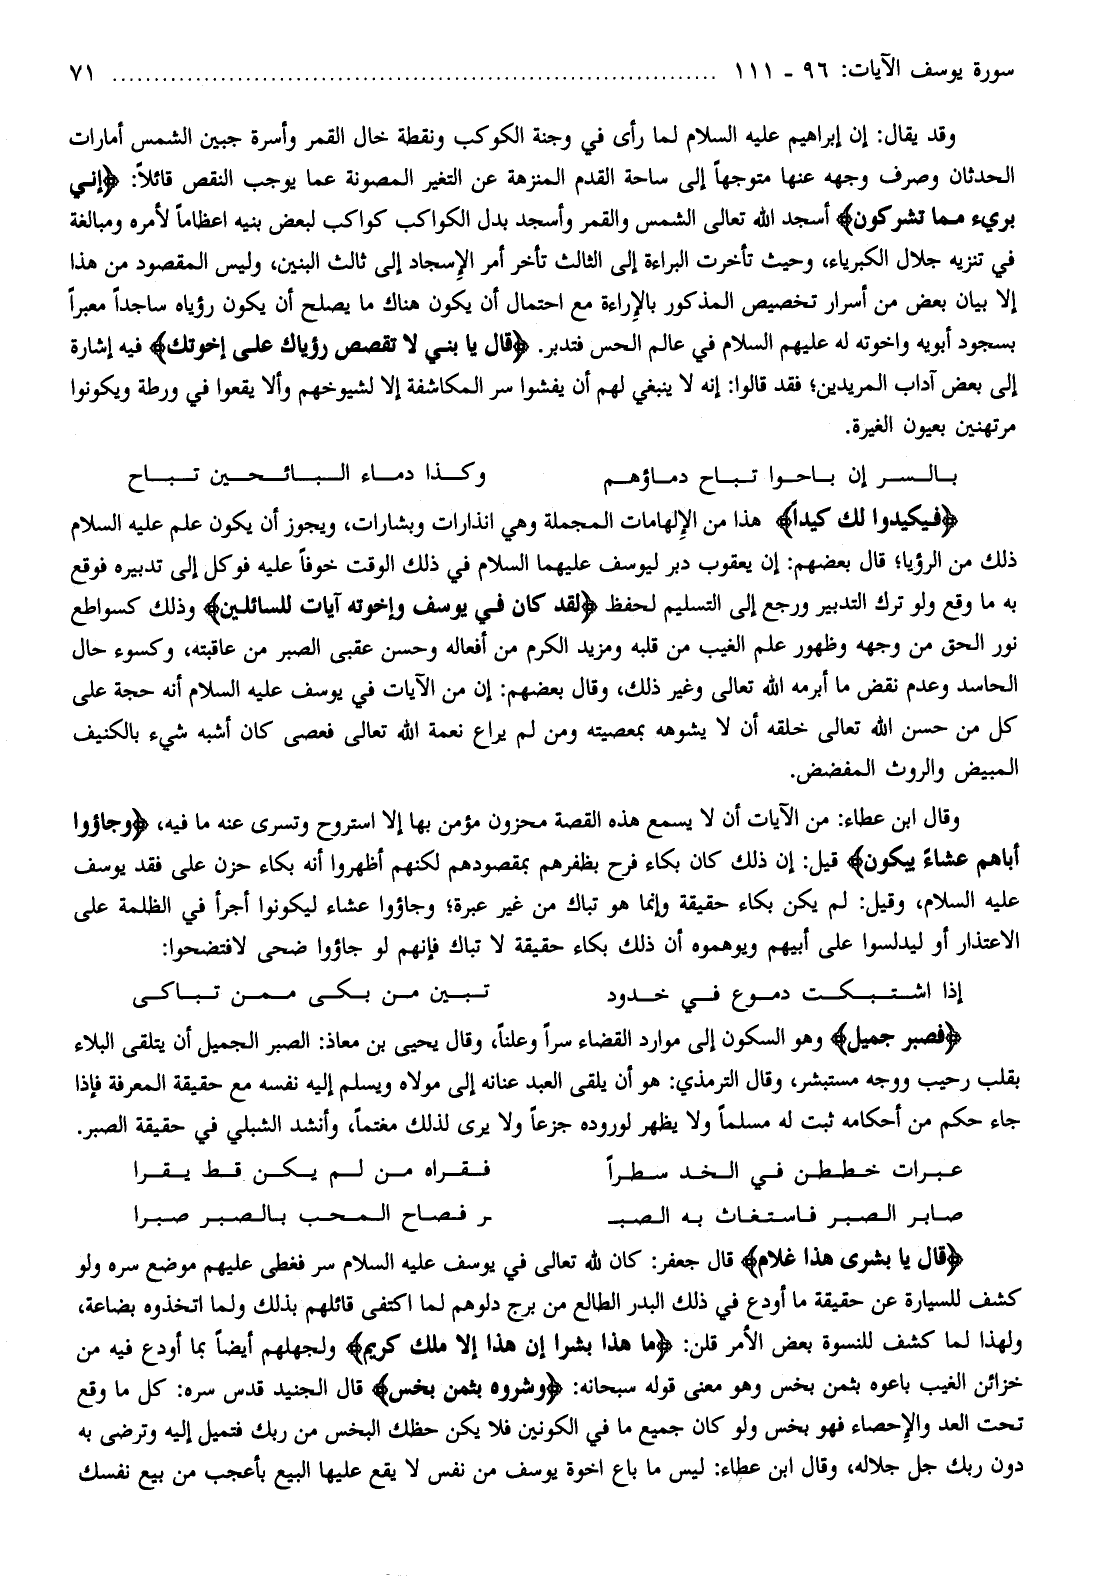 سورة يوسف الآيات: ٩٦ ـ ١١١ ........................................................................ ٧١
وقد يقال: إن إبراهيم عليه السلام لما رأى في وجنة الكوكب ونقطة خال القمر وأسرة جبين الشمس أمارات
الحدثان وصرف وجهه عنها متوجهاً إلى ساحة القدم المنزهة عن التغير المصونة عما يوجب النقص قائلاً: ﴿إني
بريء مما تشركون﴾ أسجد الله تعالى الشمس والقمر وأسجد بدل الكواكب كواكب لبعض بنيه اعظاماً لأمره ومبالغة
في تنزيه جلال الكبرياء، وحيث تأخرت البراءة إلى الثالث تأخر أمر الإسجاد إلى ثالث البنين، وليس المقصود من هذا
إلا بيان بعض من أسرار تخصيص المذكور بالإراءة مع احتمال أن يكون هناك ما يصلح أن يكون رؤياه ساجداً معبراً
بسجود أبويه واخوته له عليهم السلام في عالم الحس فتدبر. ﴿قال يا بني لا تقصص رؤياك على إخوتك﴾ فيه إشارة
إلى بعض آداب المريدين؛ فقد قالوا: إنه لا ينبغي لهم أن يفشوا سر المكاشفة إلا لشيوخهم وألا يقعوا في ورطة ويكونوا
مرتهنين بعيون الغيرة.
بالسر إن باحوا تباح دماؤهم وكذا دماء البائحين تباح
﴿فيكيدوا لك كيداً﴾ هذا من الإلهامات المجملة وهي انذارات وبشارات، ويجوز أن يكون علم عليه السلام
ذلك من الرؤيا؛ قال بعضهم: إن يعقوب دبر ليوسف عليهما السلام في ذلك الوقت خوفاً عليه فوكل إلى تدبيره فوقع
به ما وقع ولو ترك التدبير ورجع إلى التسليم لحفظ ﴿لقد كان في يوسف وإخوته آيات للسائلين﴾ وذلك كسواطع
نور الحق من وجهه وظهور علم الغيب من قلبه ومزيد الكرم من أفعاله وحسن عقبى الصبر من عاقبته، وكسوء حال
الحاسد وعدم نقض ما أبرمه الله تعالى وغير ذلك، وقال بعضهم: إن من الآيات في يوسف عليه السلام أنه حجة على
كل من حسن الله تعالى خلقه أن لا يشوهه بمعصيته ومن لم يراع نعمة الله تعالى فعصى كان أشبه شيء بالكنيف
المبيض والروث المفضض.
وقال ابن عطاء: من الآيات أن لا يسمع هذه القصة محزون مؤمن بها إلا استروح وتسرى عنه ما فيه، ﴿وجاؤوا
أباهم عشاءً يبكون﴾ قيل: إن ذلك كان بكاء فرح بظفرهم بمقصودهم لكنهم أظهروا أنه بكاء حزن على فقد يوسف
عليه السلام، وقيل: لم يكن بكاء حقيقة وإنما هو تباك من غير عبرة؛ وجاؤوا عشاء ليكونوا أجرأ في الظلمة على
الاعتذار أو ليدلسوا على أبيهم ويوهموه أن ذلك بكاء حقيقة لا تباك فإنهم لو جاؤوا ضحى لافتضحوا:
إذا اشتبكت دموع في خدود تبين من بكى ممن تباكى
﴿فصبر جميل﴾ وهو السكون إلى موارد القضاء سراً وعلناً، وقال يحيى بن معاذ: الصبر الجميل أن يتلقى البلاء
بقلب رحيب ووجه مستبشر، وقال الترمذي: هو أن يلقى العبد عنانه إلى مولاه ويسلم إليه نفسه مع حقيقة المعرفة فإذا
جاء حكم من أحكامه ثبت له مسلماً ولا يظهر لوروده جزعاً ولا يرى لذلك مغتماً، وأنشد الشبلي في حقيقة الصبر.
عبرات خططن في الخد سطراً فقراه من لم يكن قط يقرا
صابر الصبر فاستغاث به الصبـ ـر فصاح المحب بالصبر صبرا
﴿قال يا بشرى هذا غلام﴾ قال جعفر: كان لله تعالى في يوسف عليه السلام سر فغطى عليهم موضع سره ولو
كشف للسيارة عن حقيقة ما أودع في ذلك البدر الطالع من برج دلوهم لما اكتفى قائلهم بذلك ولما اتخذوه بضاعة،
ولهذا لما كشف للنسوة بعض الأمر قلن: ﴿ما هذا بشرا إن هذا إلا ملك كريم﴾ ولجهلهم أيضاً بما أودع فيه من
خزائن الغيب باعوه بثمن بخس وهو معنى قوله سبحانه: ﴿وشروه بثمن بخس﴾ قال الجنيد قدس سره: كل ما وقع
تحت العد والإحصاء فهو بخس ولو كان جميع ما في الكونين فلا يكن حظك البخس من ربك فتميل إليه وترضى به
دون ربك جل جلاله، وقال ابن عطاء: ليس ما باع اخوة يوسف من نفس لا يقع عليها البيع بأعجب من بيع نفسك